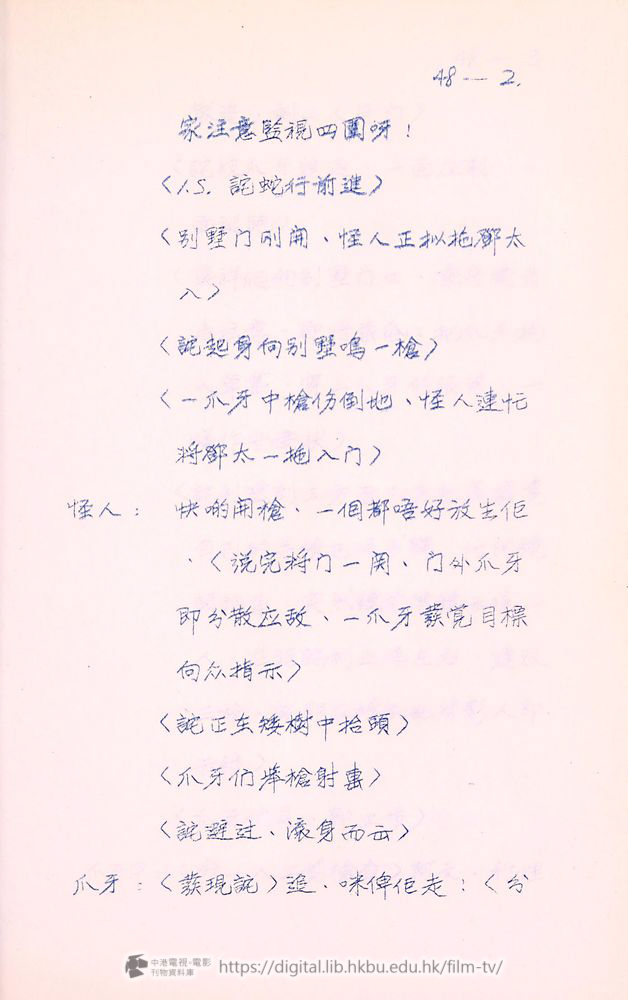 48—2.
家注意監視四圍呀！
〈I.S. 詫蛇行前進〉
〈别墅门刚開、怪人正拟拖鄧太
入〉
〈詫起身向别墅鳴一槍〉
〈一爪牙中槍伤倒地、怪人連忙
将鄧太一拖入门〉
怪人：快啲開槍、一個都唔好放生佢
．〈説完将门一関、门外爪牙
即分散应敌、一爪牙發覚目標
向众指示〉
〈詫正在矮樹中抬頭〉
〈爪牙们举槍射擊〉
〈詫避过、滚身而去〉
爪牙：〈發現詫〉追．咪俾佢走！〈分
中港電視·電影
刊物資料庫
https://digital.lib.hkbu.edu.hk/film-tv/